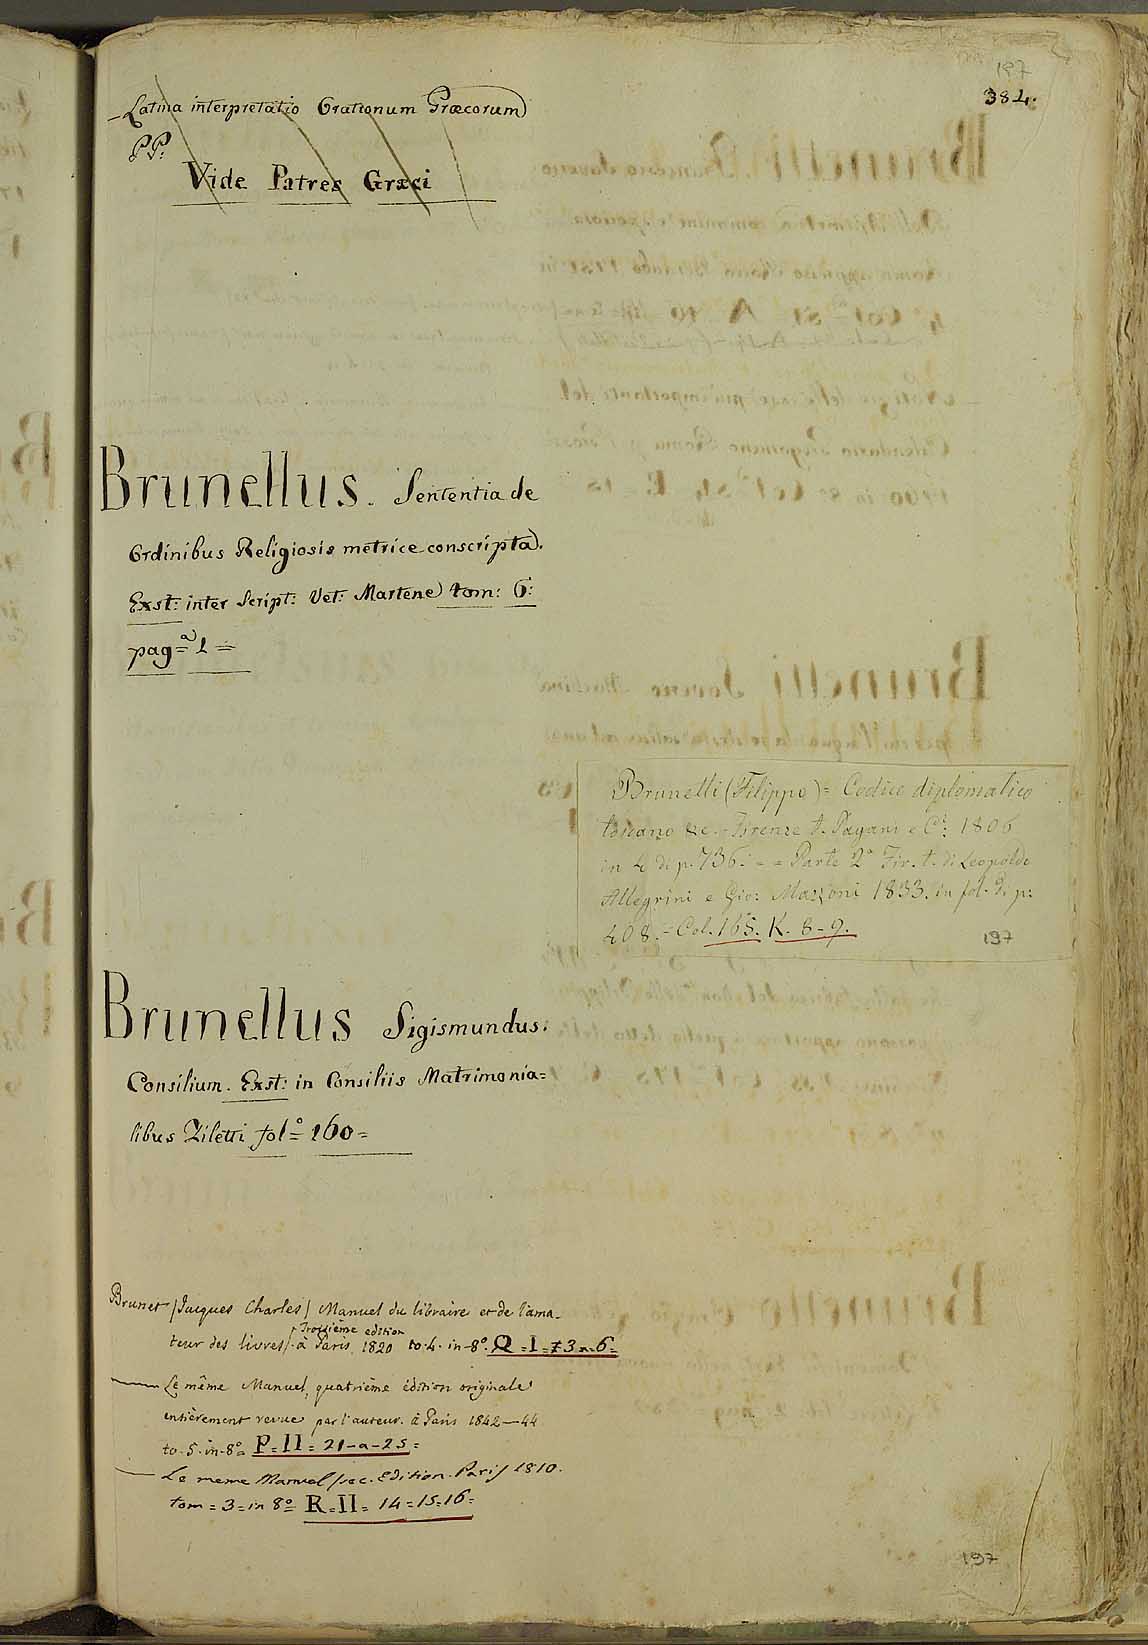 197
384.
Latina interpretatio Orationum Græcorum
PP:
Vide Patres Græci
Brunellus. Sententia de
Ordinibus Religiosis metrice conscripta.
Exst: inter Script: Vet: Martene tom: 6:
pag=ª 1 =
Brunetti (Filippo) = Codice diplomatico
toscano &c. - Firenze t. Pagani e Cⁱ: 1806
in 4 di p. 736. = = Parte 2ª Fir. t. di Leopoldo
Allegrini e Gio: Mazzoni 1833. in fol. di p:
408. = Col. 165. K. 8-9.
197
Brunellus Sigismundus.
Consilium. Exst: in Consiliis Matrimonia=
libus Ziletti fol=º 160=
Brunet / Jacques Charles / Manuel du libraire et de l'ama-
Troisième edition
teur des livres. à Paris 1820 to. 4. in-8º. Q = I = 3 a 6 =
Le même Manuel, quatrième édition originale
entièrement revue par l'auteur. à Paris 1842-44
to. 5. in-8º= P = II = 21-a-25 =
Le meme Manuel sec. Edition. Paris 1810.
tom = 3 = in 8º= R = II = 14 = 15 = 16 =
197